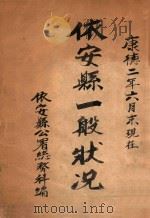 康德二年六月末現在
依安縣一般狀況
依安縣公署總務科編